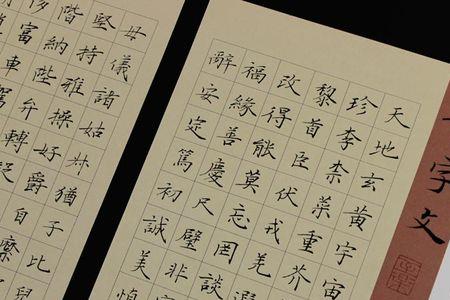 字文
天地玄黃宇宙
珍李柰菜重芥
黎首臣伏戎羌
改得能莫忘罔談
福緣善慶尺璧非
辭安定篤初誠美
母儀諸姑猶子比兒
堅持雅操好爵自縻
階納陛弁轉疑
侈富車駕